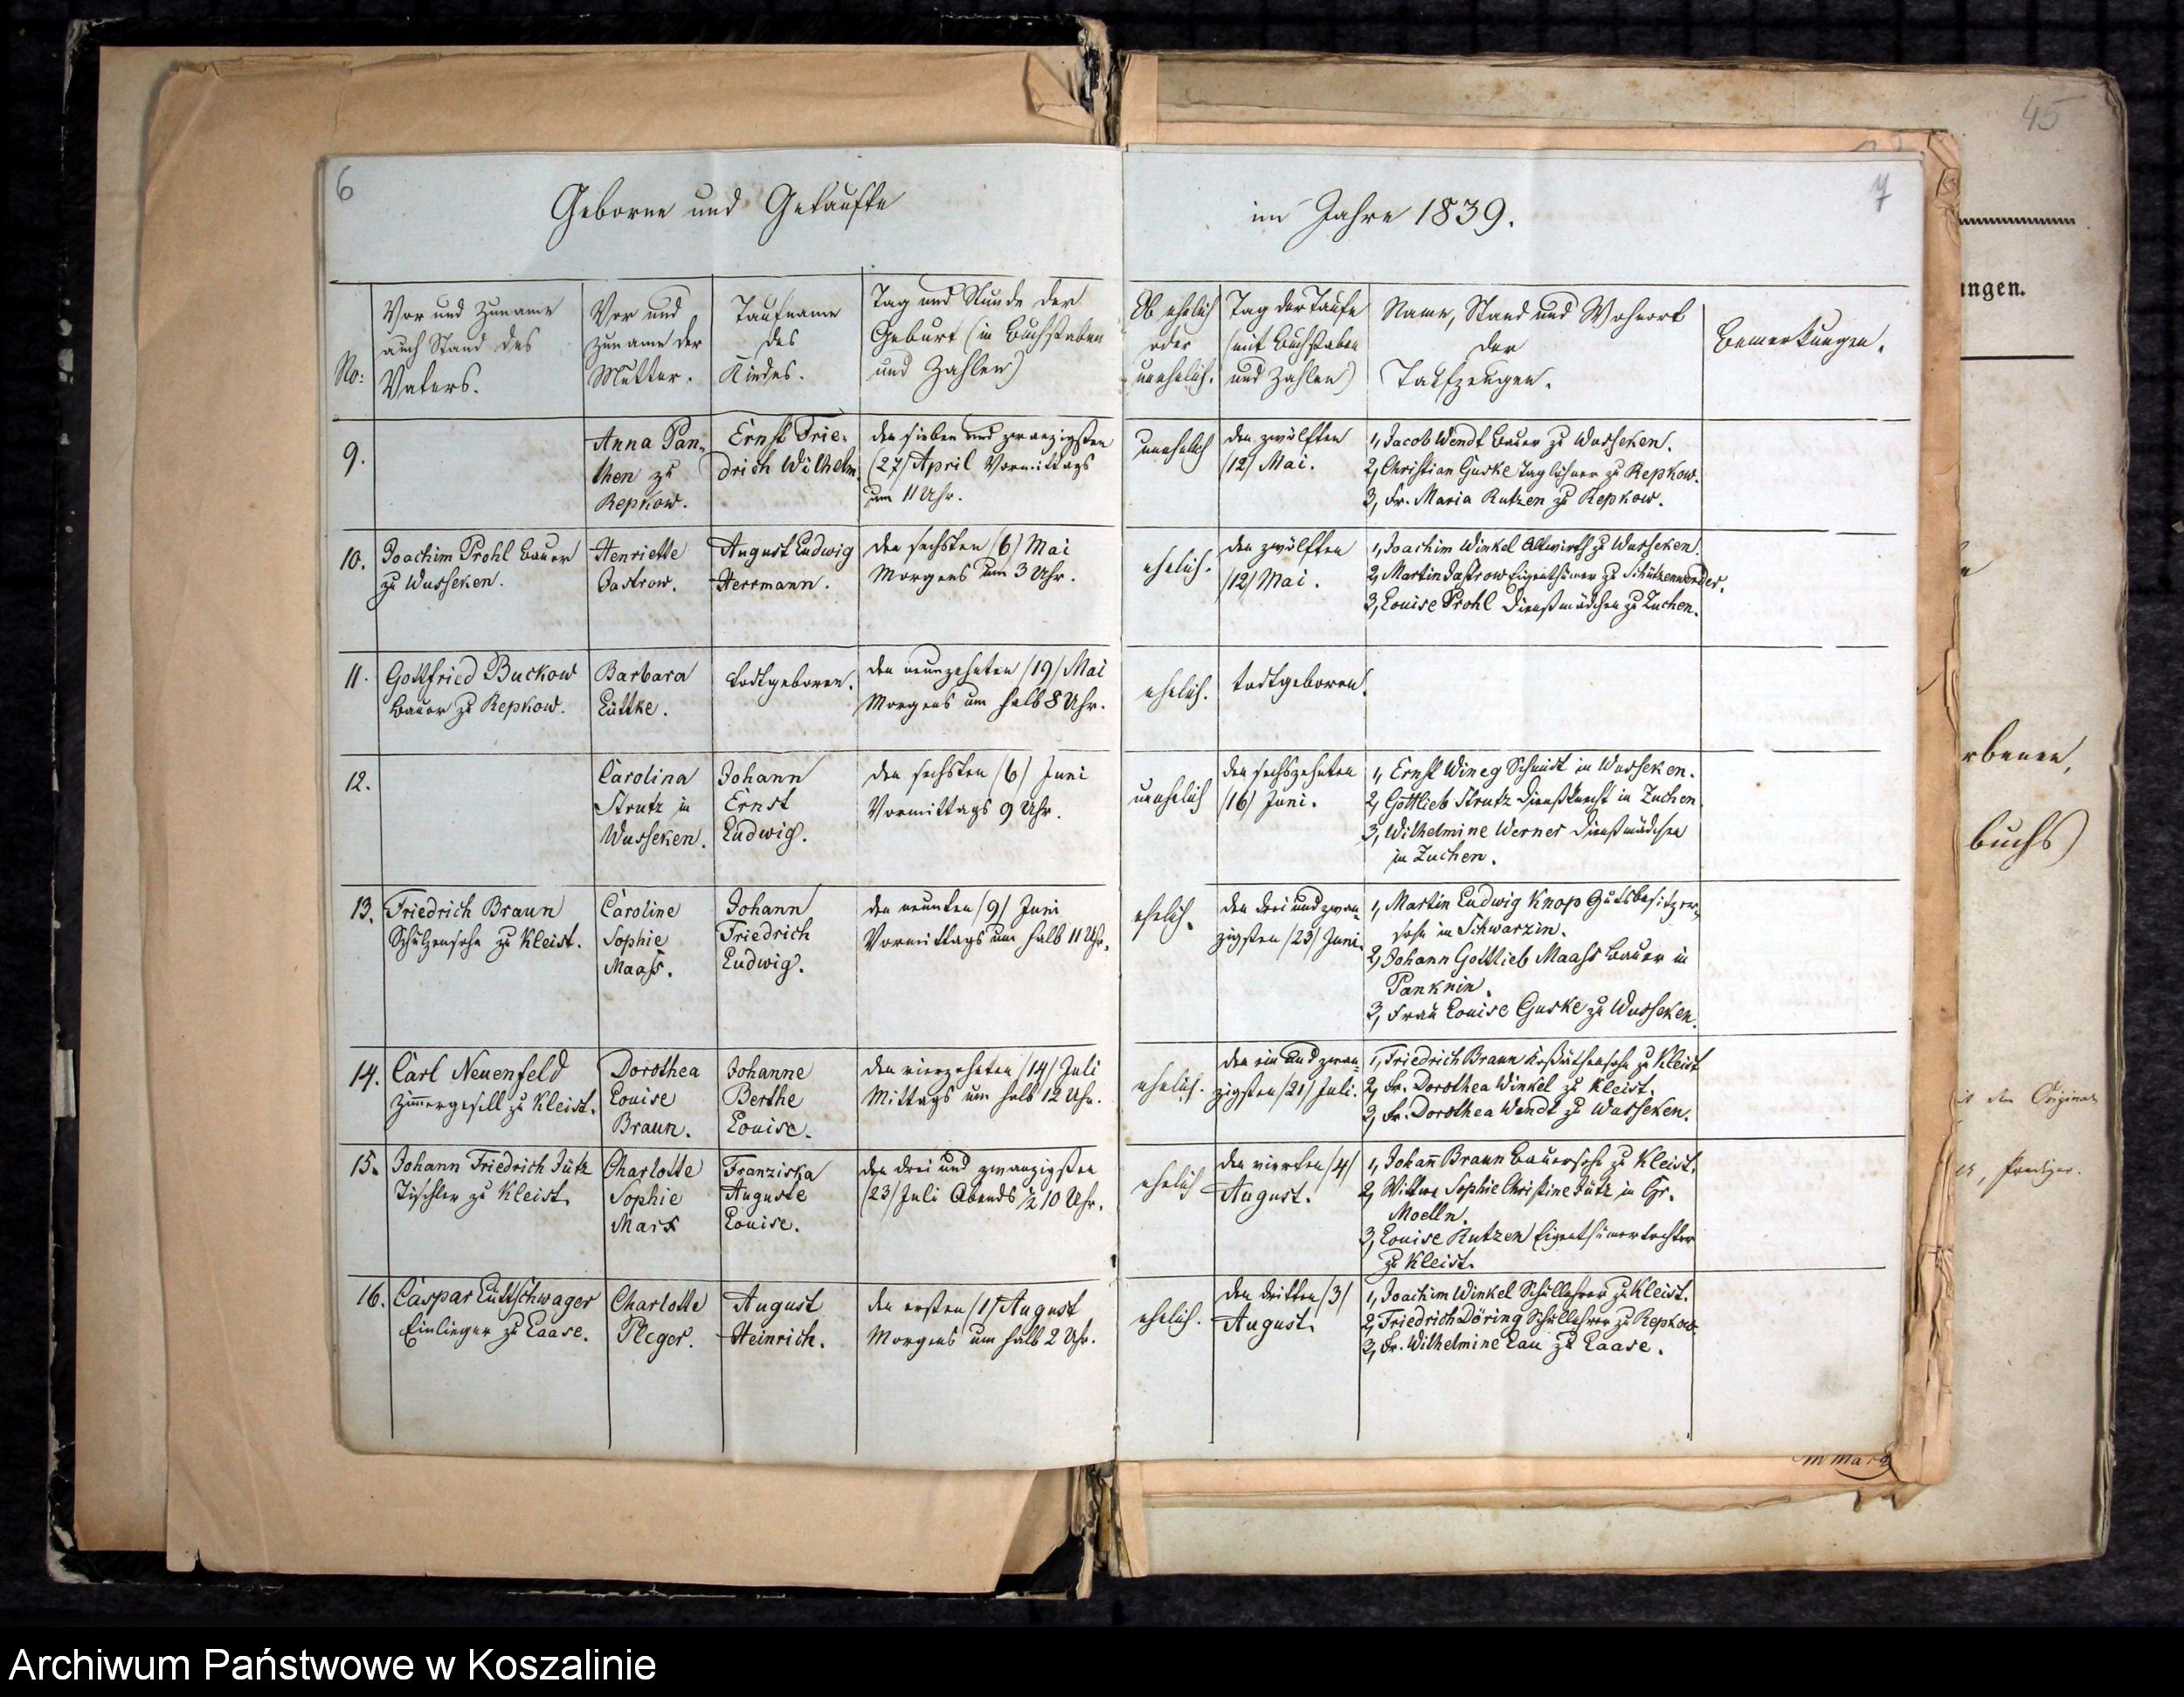 6
Geborne und Getaufte
No:
Vor und Zuname
auch Stand des
Vaters.
Vor und
Zuname der
Mutter.
Taufname
des
Kindes.
Tag und Stunde der
Geburt (in Buchstaben
und Zahlen)
9.
Anna Pan-
then zu
Repkow.
Ernst Frie-
drich Wilhelm.
den sieben und zwanzigsten
/27/ April Vormittags
um 11 Uhr.
10.
Joachim Prohl Bauer
zu Wusseken.
Henriette
Jastrow.
August Ludwig
Herrmann.
den sechsten /6/ Mai
Morgens um 3 Uhr.
11.
Gottfried Buckow
Bauer zu Repkow.
Barbara
Lüttke.
todtgeboren.
den neunzehnten /19/ Mai
Morgens um halb 8 Uhr.
12.
Carolina
Strutz in
Wusseken.
Johann
Ernst
Ludwig.
den sechsten /6/ Juni
Vormittags 9 Uhr.
13.
Friedrich Braun
Schulzensohn zu Kleist.
Caroline
Sophie
Maass.
Johann
Friedrich
Ludwig.
den neunten /9/ Juni
Vormittags um halb 11 Uhr.
14.
Carl Neuenfeld
Zimmergesell zu Kleist.
Dorothea
Louise
Braun.
Johanne
Berthe
Louise.
den vierzehnten /14/ Juli
Mittags um halb 12 Uhr.
15.
Johann Friedrich Jütz
Tischler zu Kleist.
Charlotte
Sophie
Marx
Franziska
Auguste
Louise.
den drei und zwanzigsten
/23/ Juli Abends ½ 10 Uhr.
16.
Caspar Lüttschwager
Einlieger zu Laase.
Charlotte
Pleger.
August
Heinrich.
den ersten /1/ August
Morgens um halb 2 Uhr.
7
im Jahre 1839.
Ob ehelich
oder
unehelich.
Tag der Taufe
(mit Buchstaben
und Zahlen)
Name, Stand und Wohnort
der
Taufzeugen.
Bemerkungen.
unehelich
den zwölften
/12/ Mai.
1, Jacob Wendt Bauer zu Wusseken.
2, Christian Guske Tagelöhner zu Repkow.
3, Fr. Maria Rutzen zu Repkow.
ehelich.
den zwölften
/12/ Mai.
1, Joachim Winkel Altwirth zu Wusseken.
2, Martin Jastrow Eigenthümer zu Schützenwerder.
3, Louise Prohl Dienstmädchen zu Zuchen.
ehelich.
todtgeboren.
unehelich
den sechszehnten
/16/ Juni.
1, Ernst Wineg Schmidt in Wusseken.
2, Gottlieb Strutz Dienstknecht in Zuchen
3, Wilhelmine Werner Dienstmädchen
in Zuchen.
ehelich.
den drei und zwan-
zigsten /23/ Juni.
1, Martin Ludwig Knop Gutsbesitzer-
sohn in Schwarzin.
2, Johann Gottlieb Maass Bauer in
Panknin.
3, Frau Louise Guske zu Wusseken.
ehelich.
den ein und zwan-
zigsten /21/ Juli.
1, Friedrich Braun Kossäthensohn zu Kleist
2, Fr. Dorothea Winkel zu Kleist.
3, Fr. Dorothea Wendt zu Wusseken.
ehelich
den vierten /4/
August.
1, Johañ Braun Bauersohn zu Kleist.
2, Wittwe Sophie Christine Jütz in Gr.
Moelln.
3, Louise Rutzen Eigenthümertochter
zu Kleist.
ehelich.
den dritten /3/
August.
1, Joachim Winkel Schullehrer zu Kleist.
2, Friedrich Döring Schullehrer zu Repkow
3, Fr. Wilhelmine Lau zu Laase.
45
ngen.
rbenen,
buchs)
den Original
Prediger.
Archiwum Państwowe w Koszalinie